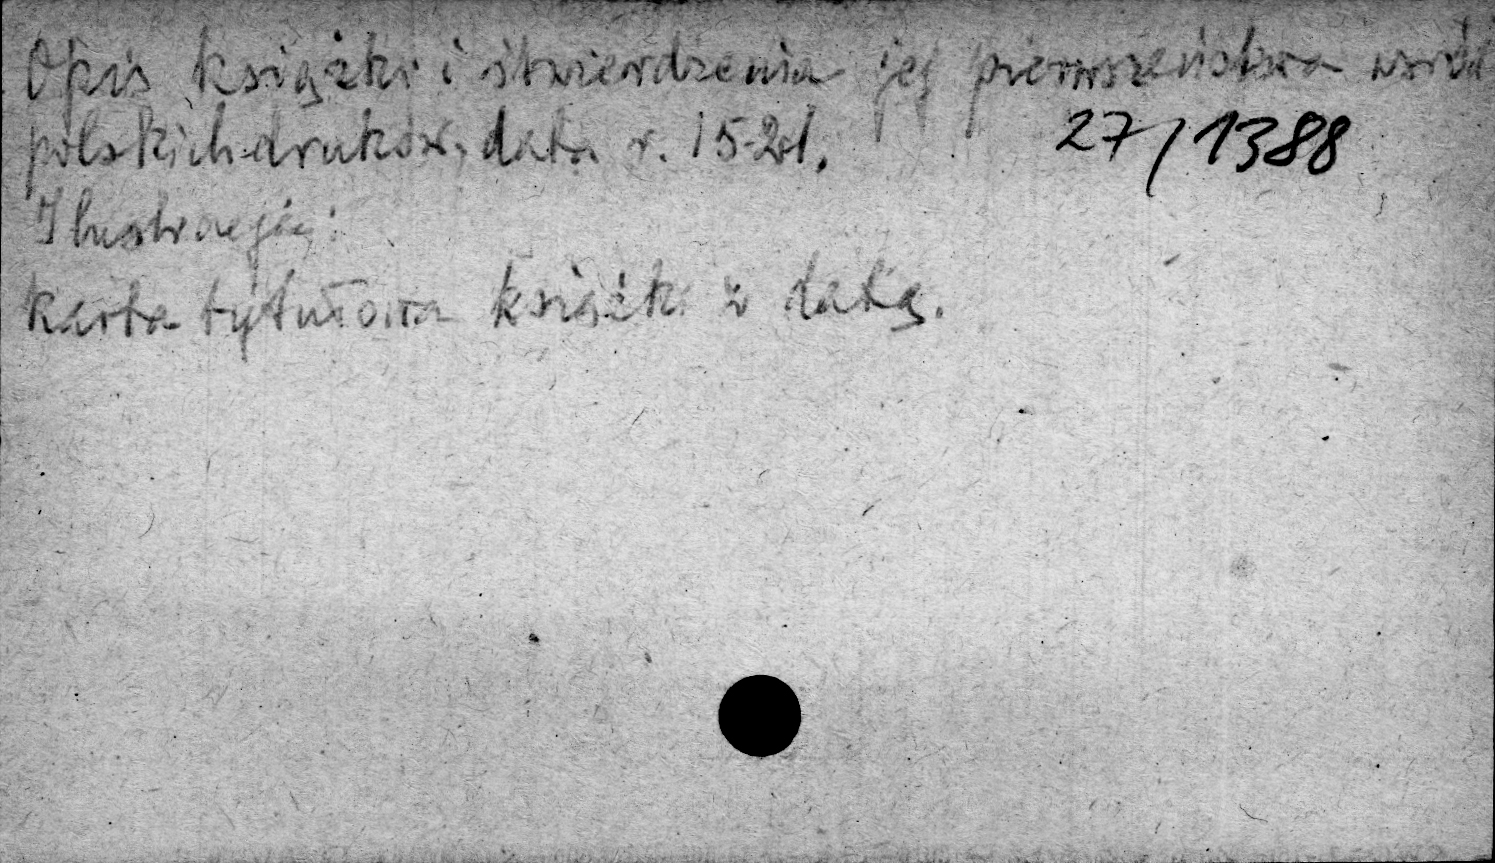 Opis książki i stwierdzenia jej pierwszeństwa wśród
polskich druków, data r. 1521. 27/1388
Ilustracje:
karta tytułowa książki z datą.